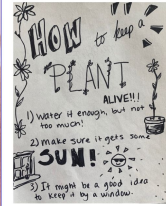 HOW to keep a
PLANT
ALIVE!!!
1) Water it enough, but not
too much!
2) make sure it gets some
SUN!
3) It might be a good idea
to keep it by a window.